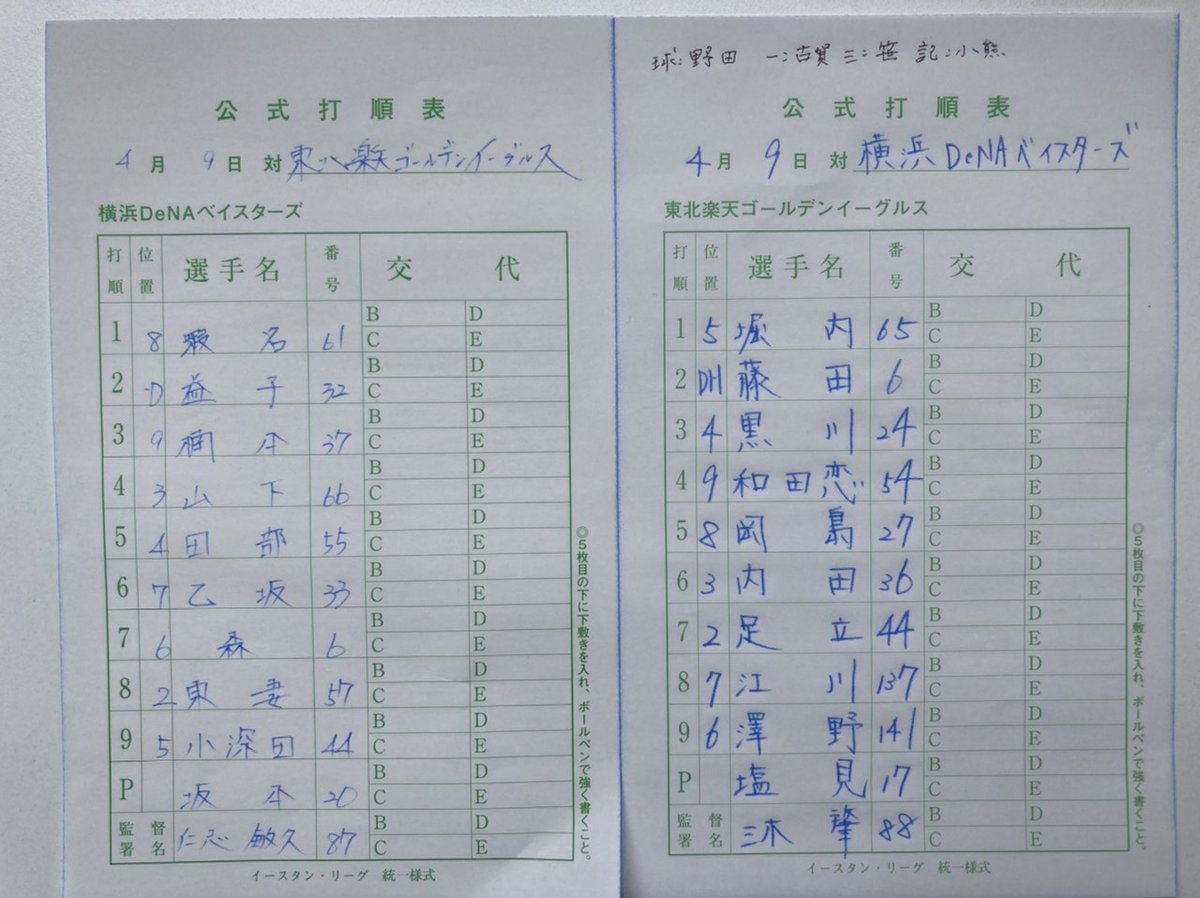 公式打順表
4月 9日 対 東北楽天ゴールデンイーグルス
横浜DeNAベイスターズ
打順 位置 選手名 番号 交代
1 8 瀬名 61 B D C E
2 D 益子 32 B D C E
3 9 楠本 37 B D C E
4 3 山下 66 B D C E
5 4 田部 55 B D C E
6 7 乙坂 33 B D C E
7 6 森 6 B D C E
8 2 東妻 57 B D C E
9 5 小深田 44 B D C E
P 坂本 20 B D C E
監督署名 仁志敏久 87 B D C E
◎5枚目の下に下敷きを入れ、ボールペンで強く書くこと。
イースタン・リーグ 統一様式
球:野田 一:古賀 三:笹 記:小熊
公式打順表
4月 9日 対 横浜DeNAベイスターズ
東北楽天ゴールデンイーグルス
打順 位置 選手名 番号 交代
1 5 堀内 65 B D C E
2 DH 藤田 6 B D C E
3 4 黒川 24 B D C E
4 9 和田恋 54 B D C E
5 8 岡島 27 B D C E
6 3 内田 36 B D C E
7 2 足立 44 B D C E
8 7 江川 137 B D C E
9 6 澤野 141 B D C E
P 塩見 17 B D C E
監督署名 三木肇 88 B D C E
◎5枚目の下に下敷きを入れ、ボールペンで強く書くこと。
イースタン・リーグ 統一様式